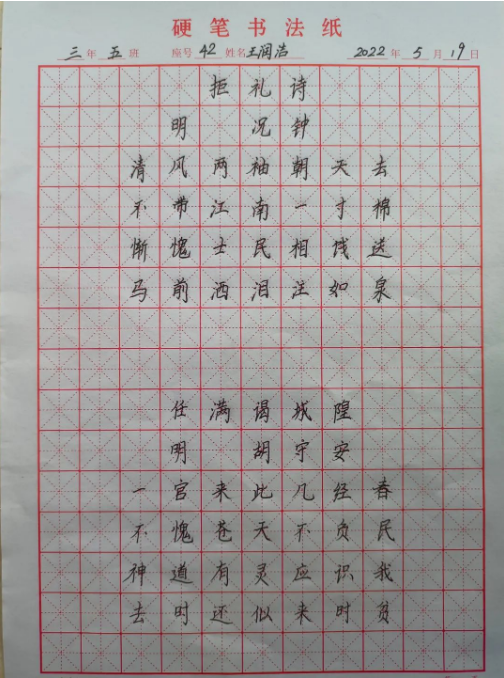 硬笔书法纸
三年五班 座号42 姓名王润洁 2022年5月19日
拒礼诗
明 况钟
清风两袖朝天去
不带江南一寸棉
惭愧士民相饯送
马前洒泪注如泉
任满谒城隍
明 胡守安
一官来此几经春
不愧苍天不负民
神道有灵应识我
去时还似来时贫